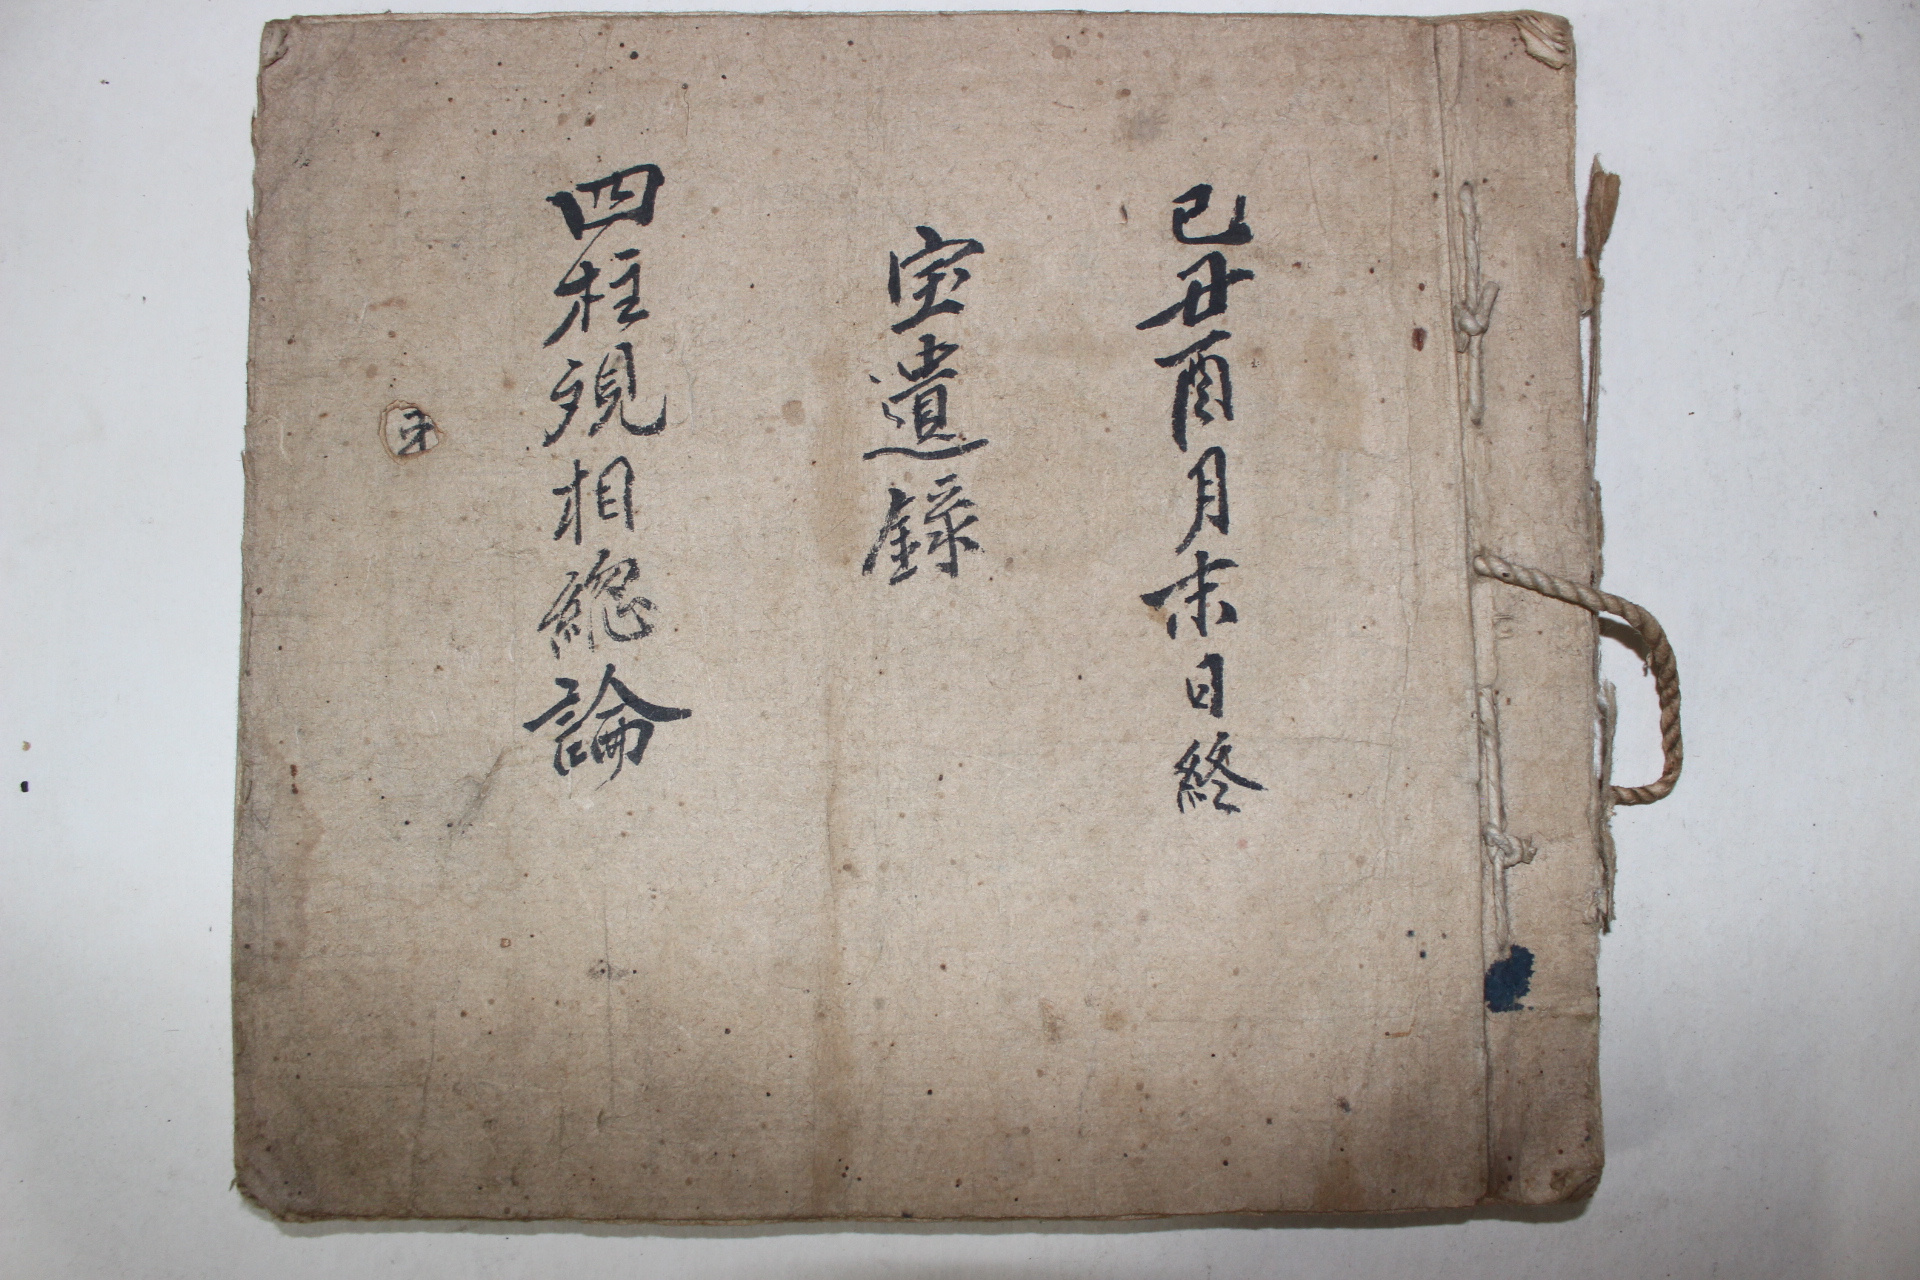 己丑酉月末日終
宝遺錄
四柱覌相緫論